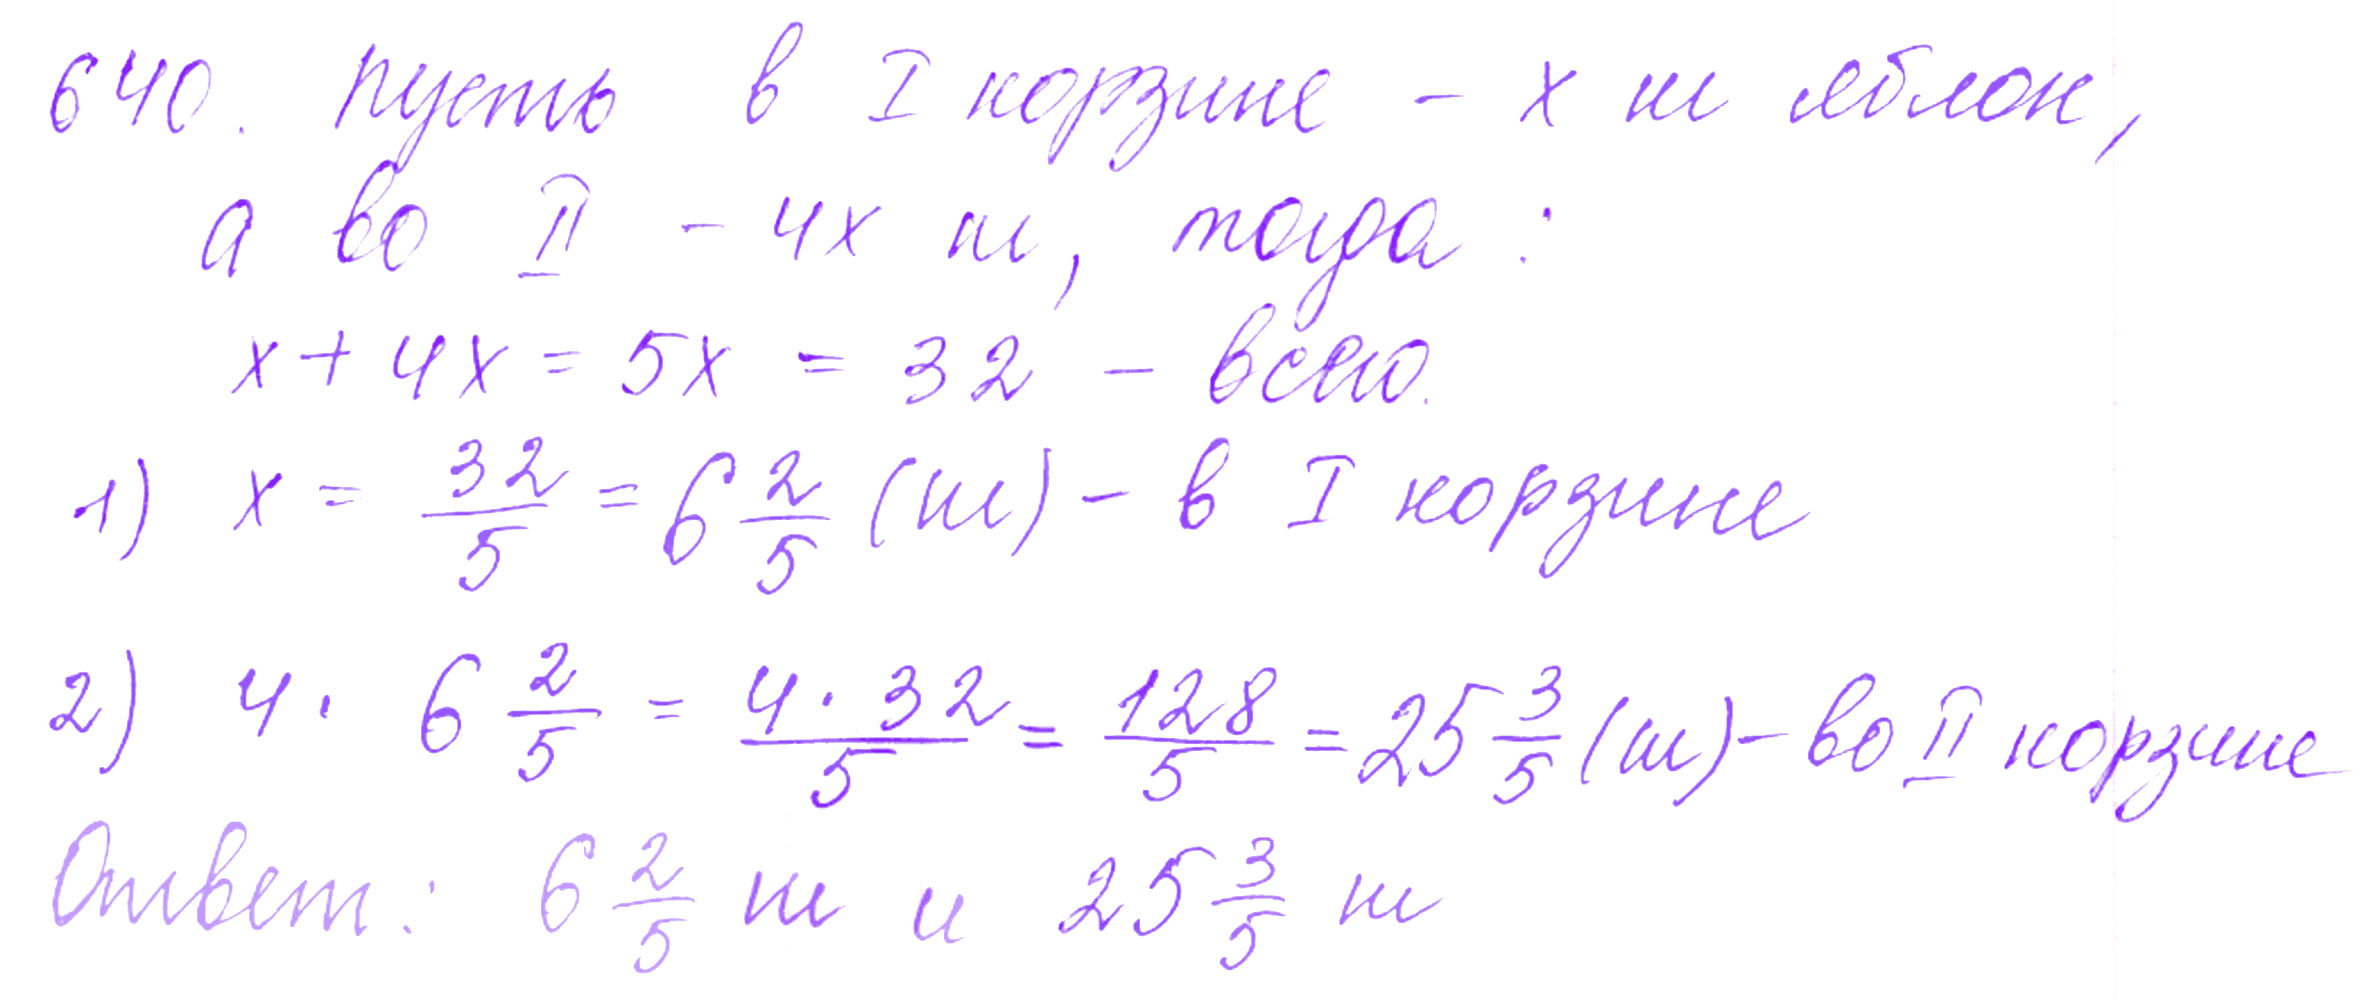 640. Пусть в I корзине - x ш яблок,
а во II - 4x ш, тогда :
x + 4x = 5x = 32 - всего.
1) x = 32/5 = 6 2/5 (ш) - в I корзине
2) 4 · 6 2/5 = 4 · 32/5 = 128/5 = 25 3/5 (ш) - во II корзине
Ответ: 6 2/5 ш и 25 3/5 ш